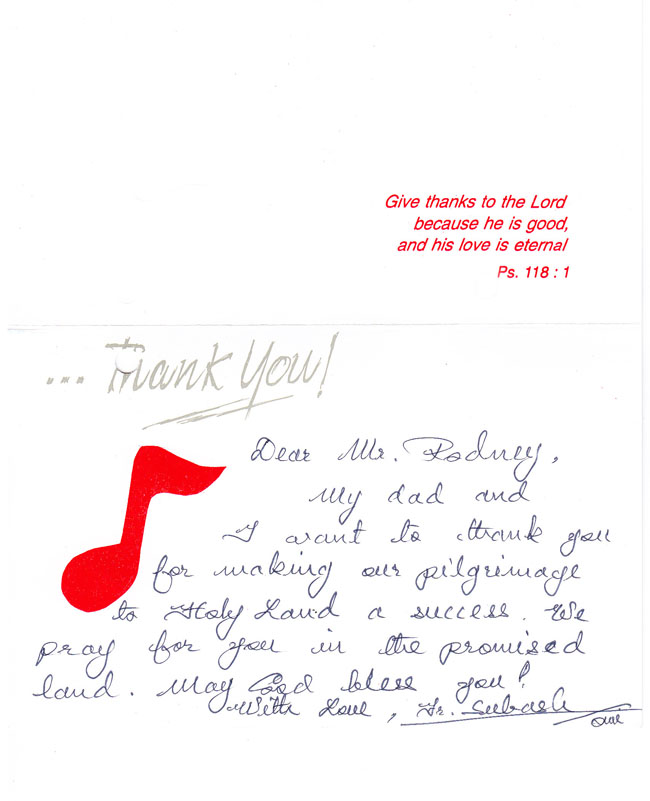 Give thanks to the Lord
because he is good,
and his love is eternal
Ps. 118 : 1
... Thank You!
Dear Mr. Rodney,
My dad and
I want to thank you
for making our pilgrimage
to Holy Land a success. We
pray for you in the promised
land. May God bless you!
With Love, Fr. Subash